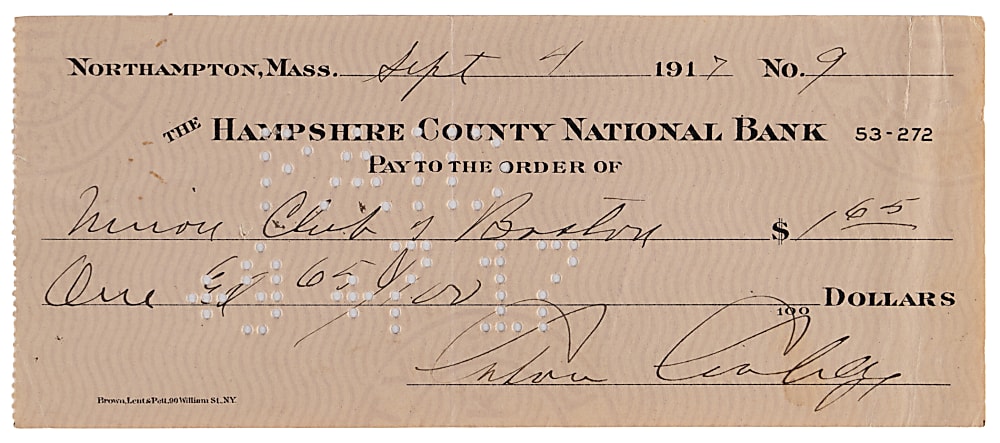 Northampton, Mass. Sept 4 1917 No. 9
The Hampshire County National Bank 53-272
Pay to the order of
Union Club of Boston $ 1 65
One & 65/100 Dollars
100
Brown, Lent & Pett, 90 William St. N.Y.